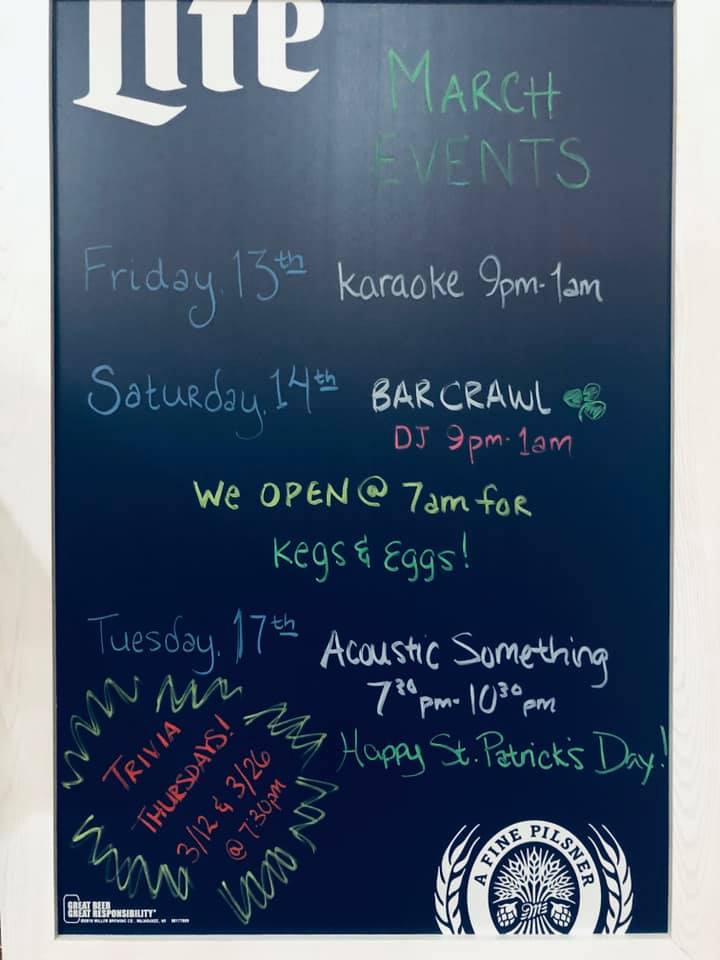 Lite
MARCH
EVENTS
Friday, 13th karaoke 9pm-1am
Saturday, 14th BAR CRAWL
DJ 9pm-1am
We OPEN @ 7am for
Kegs & Eggs!
Tuesday, 17th Acoustic Something
7³⁰pm-10³⁰pm
Happy St. Patrick's Day!
TRIVIA
THURSDAYS!
3/12 & 3/26
@ 7:30pm
A FINE PILSNER
GREAT BEER
GREAT RESPONSIBILITY